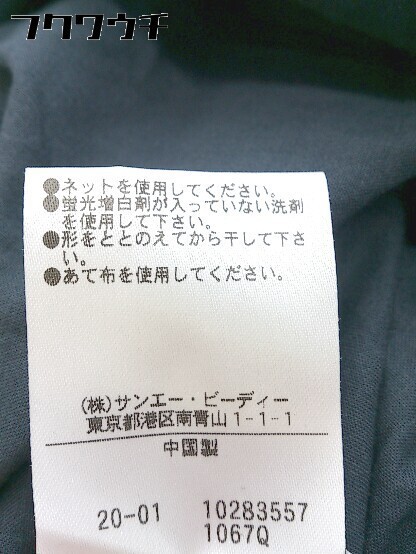 フクワウチ
●ネットを使用してください。
●蛍光増白剤が入っていない洗剤
を使用して下さい。
●形をととのえてから干して下さ
い。
●あて布を使用してください。
(株)サンエー・ビーディー
東京都港区南青山1-1-1
中国製
20-01 10283557
1067Q